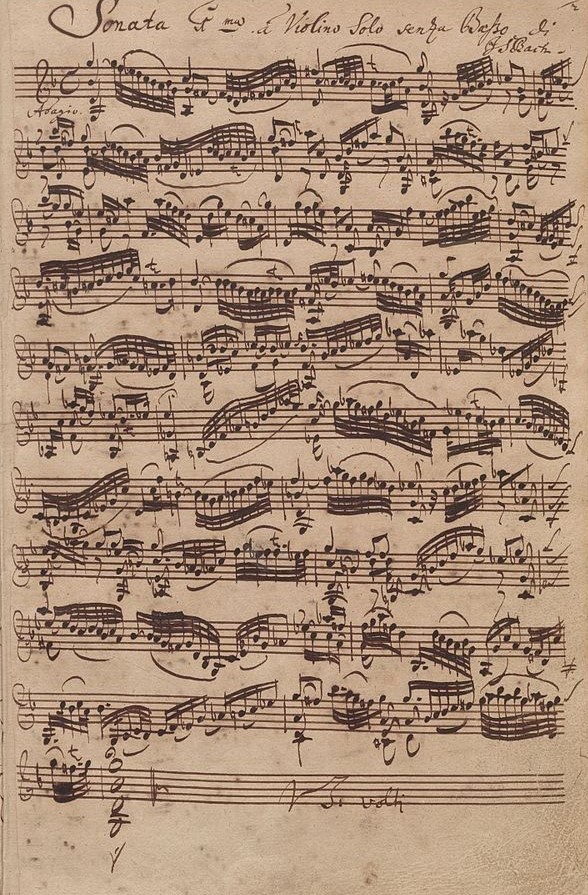 Sonata 1ma à Violino Solo senza Baßo di
JS Bach.
Adagio.
V. S. volti